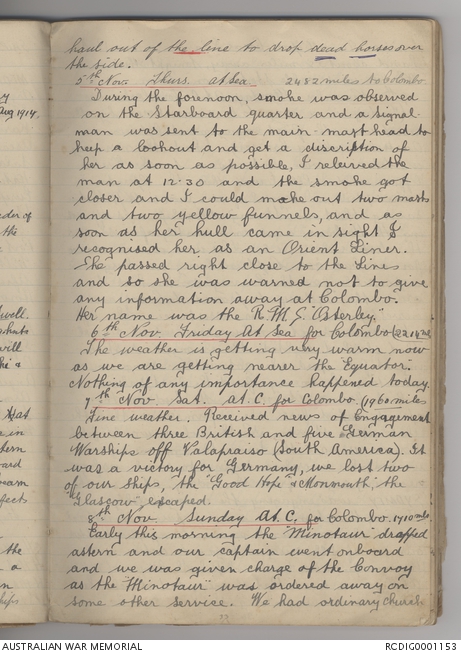 haul out of the line to drop dead horses over
the side.
5th Nov. Thurs. At Sea 2482 miles to Colombo
During the forenoon, smoke was observed
on the Starboard quarter and a signal
man was sent to the main-mast head to
keep a lookout and get a discription of
her as soon as possible, I relieved the
man at 12-30 and the smoke got
closer and I could make out two masts
and two yellow funnels, and as
soon as her hull came in sight I
recognised her as an Orient Liner.
She passed right close to the Lines
and so she was warned not to give
any information away at Colombo.
Her name was the R.M.S. "Osterley."
6th Nov. Friday At Sea for Colombo
The weather is getting very warm now
as we are getting nearer the Equator.
Nothing of any importance happened today.
7th Nov Sat. at C. for Colombo (1960 miles
Fine weather. Received news of Engagement
between three British and five German
Warships off Valapraiso (South America). It
was a victory for Germany, we lost two
of our ships, the "Good Hope & Monmouth," the
"Glascow" escaped.
8th Nov. Sunday At C. for Colombo. 1710 mls
Early this morning the "Minotaur" dropped
astern and our captain went onboard
and we was given charge of the Convoy
as the "Minotaur" was ordered away on
some other service. We had ordinary church
Aug 1914
the
will
in
the
a
AUSTRALIAN WAR MEMORIAL
RCDIG0001153